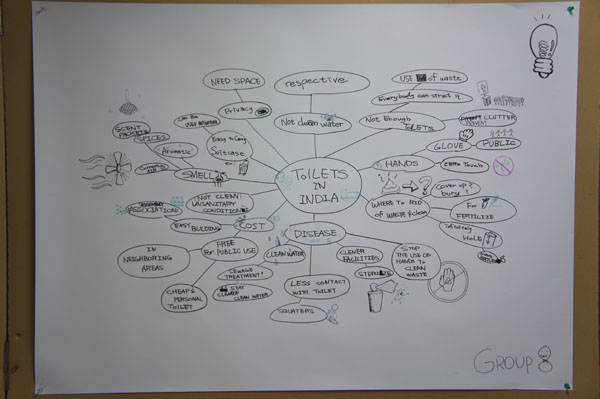 NEED SPACE
respective
USE of waste
Everybody can struct it
Privacy
Not clean water
Not Enough
TOILETS
CLUTTER
SCENT
SPICES
Aromatic
Easy to Carry
Suitcase
GLOVE
PUBLIC
SMELL
TOILETS
IN
INDIA
HANDS
ZERO Touch
NOT CLEAN!
UNSANITARY
CONDITION
COVER up?
bury?
WHERE TO RID
OF WASTE & clean
FOR
FERTILIZE
ASSOCIATION
EASY BUILDING
COST
DISEASE
HOLE
IN
NEIGHBORING
AREAS
FREE
FOR PUBLIC USE
CLEAN WATER
CLEANER
FACILITIES
STOP
THE USE OF
HANDS TO
CLEAN
WASTE
SEWAGE
TREATMENT?
CHEAP &
PERSONAL
TOILET
STAY
CLEAN WATER
LESS CONTACT
WITH TOILET
SQUATERS
GROUP 8